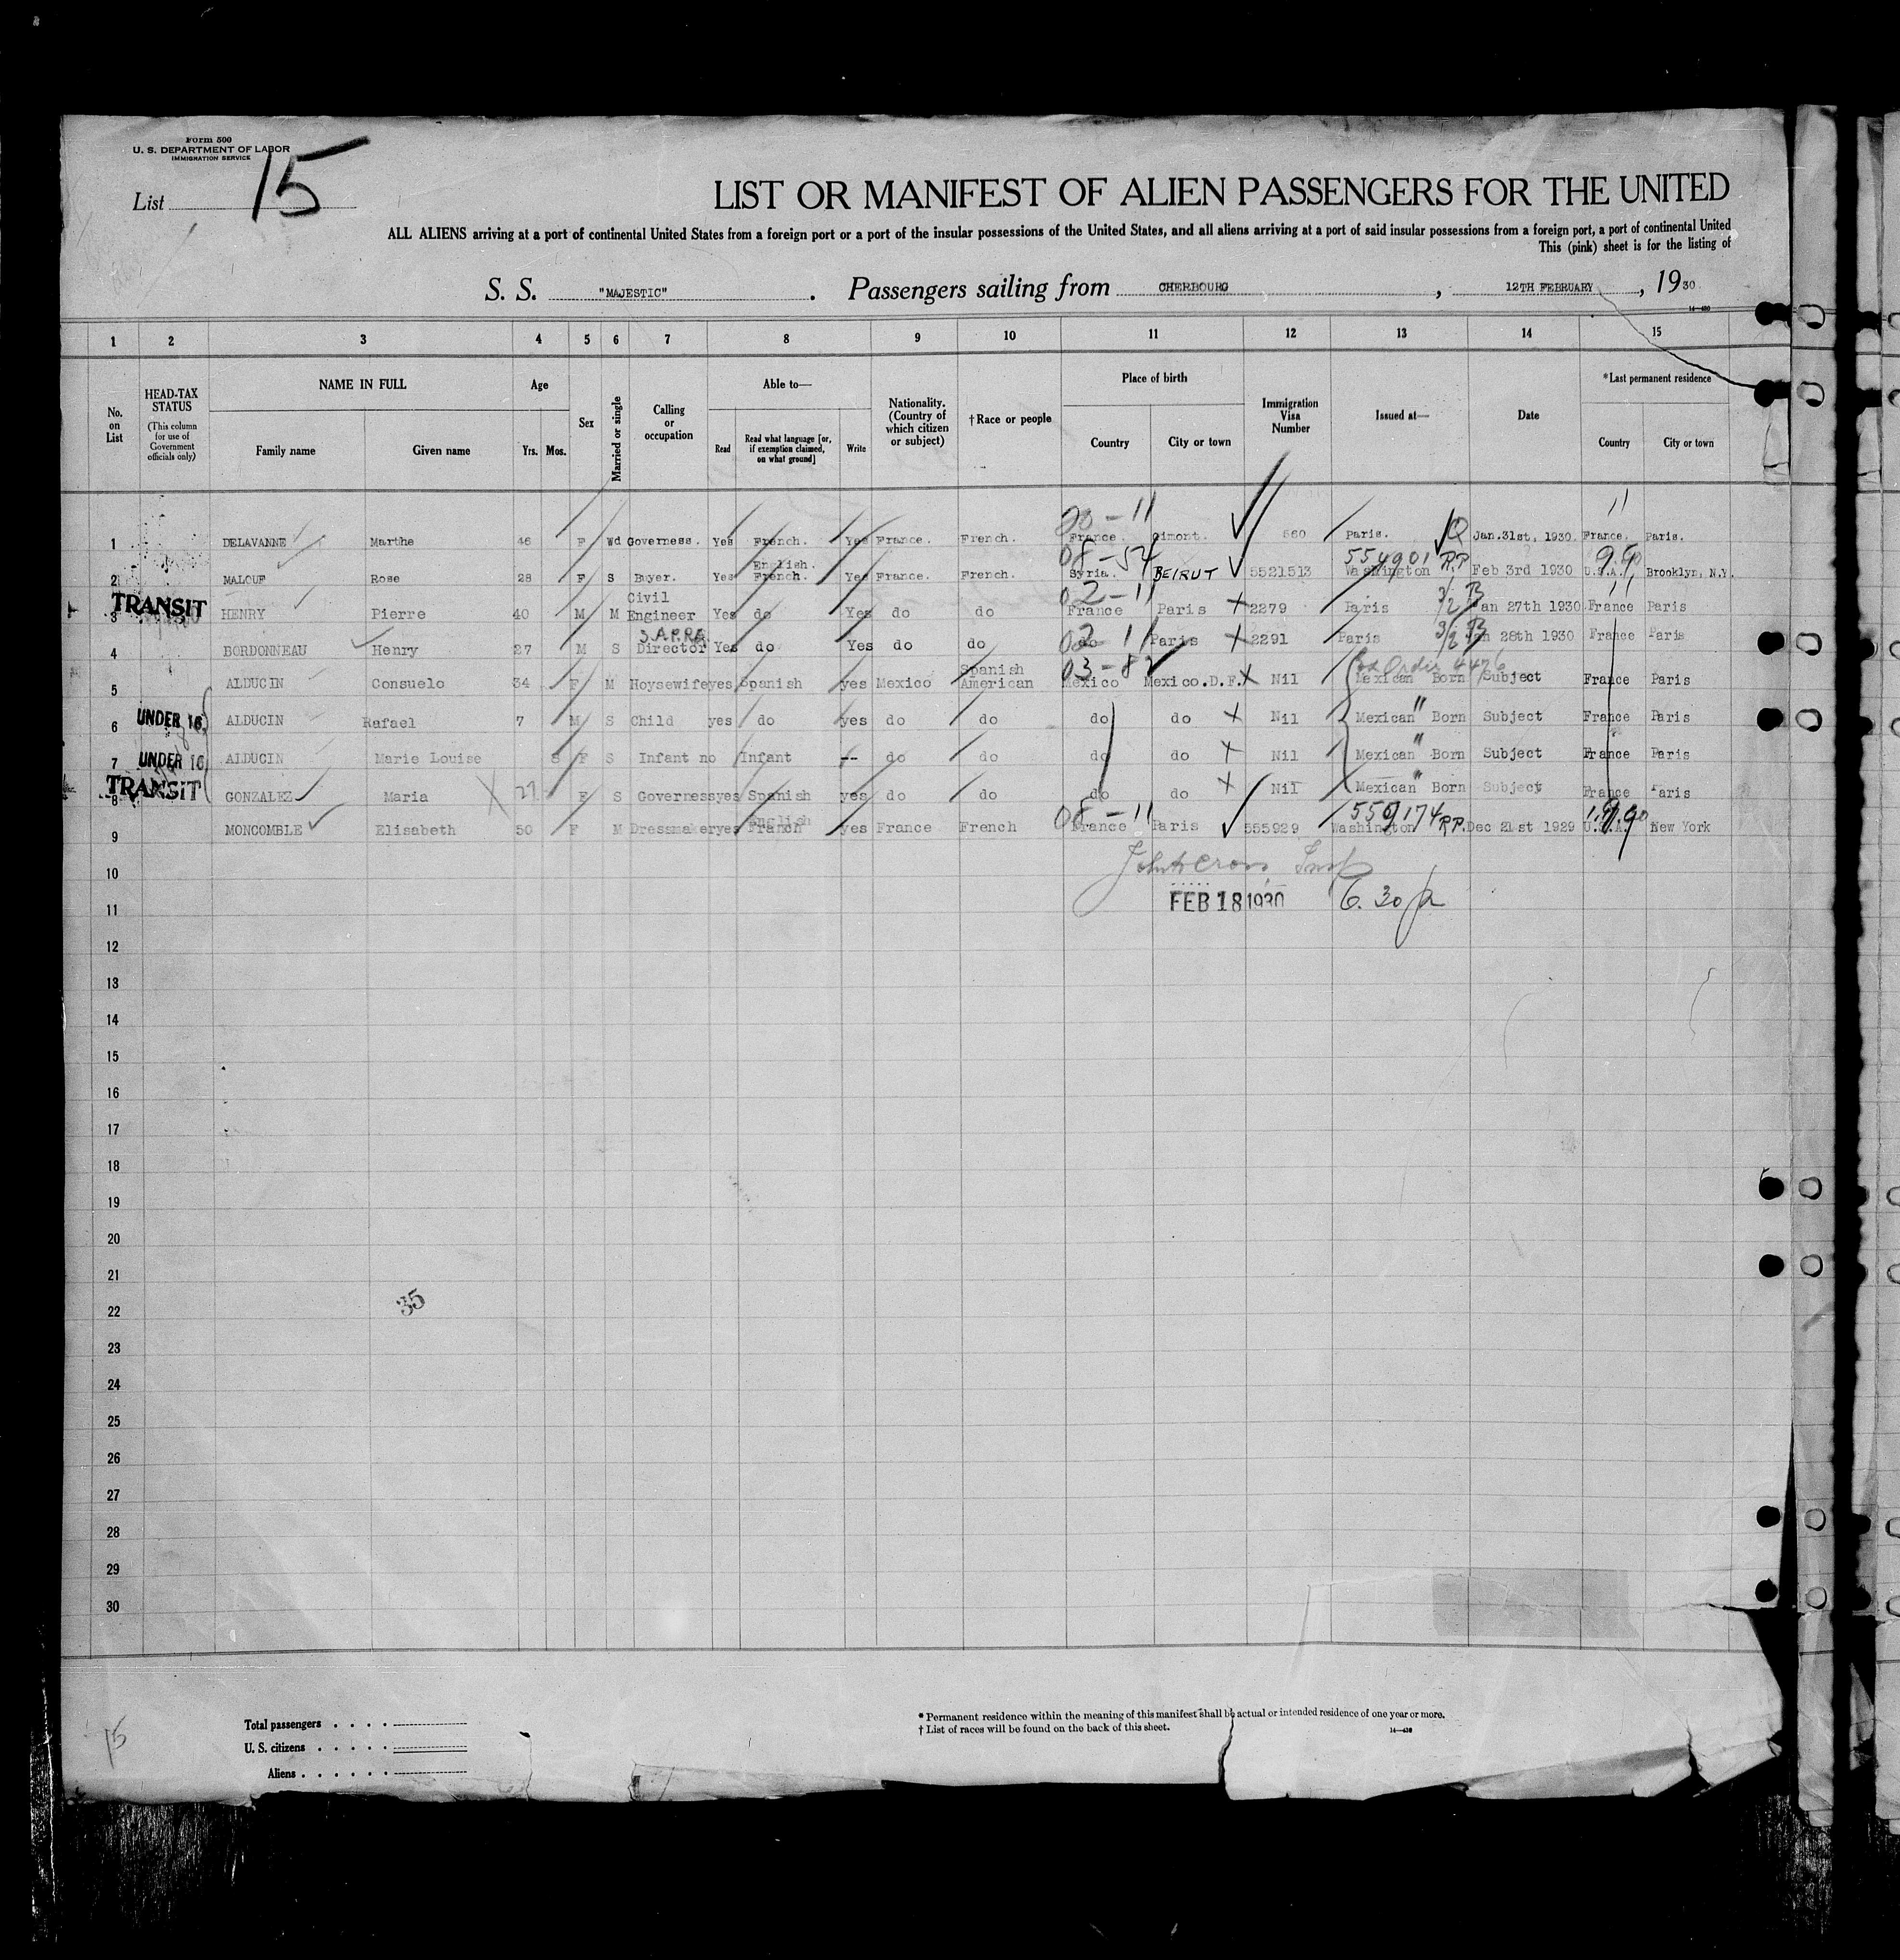 Form 500
U. S. DEPARTMENT OF LABOR
IMMIGRATION SERVICE
List 15
LIST OR MANIFEST OF ALIEN PASSENGERS FOR THE UNITED
ALL ALIENS arriving at a port of continental United States from a foreign port or a port of the insular possessions of the United States, and all aliens arriving at a port of said insular possessions from a foreign port, a port of continental United
This (pink) sheet is for the listing of
S. S. "MAJESTIC" . Passengers sailing from CHERBOURG , 12TH FEBRUARY , 1930
1 2 3 4 5 6 7 8 9 10 11 12 13 14 15
No. on List
HEAD-TAX STATUS (This column for use of Government officials only)
NAME IN FULL Family name Given name
Age Yrs. Mos.
Sex
Married or single
Calling or occupation
Able to— Read Read what language [or, if exemption claimed, on what ground] Write
Nationality. (Country of which citizen or subject)
†Race or people
Place of birth Country City or town
Immigration Visa Number
Issued at—
Date
*Last permanent residence Country City or town
20-11 11
1 DELAVANNE Marthe 46 F Wd Governess. Yes French. Yes France. French. France. Gimont. 560 Paris. Q Jan.31st, 1930. France. Paris.
English. 08-54 554901 R.P. 99
2 MALOUF Rose 28 F S Buyer. Yes French. Yes France. French. Syria. BEIRUT 5521513 Washington Feb 3rd 1930 U.S.A. Brooklyn, N.Y.
TRANSIT Civil 02-11 3/2 B 11
3 HENRY Pierre 40 M M Engineer Yes do Yes do do France Paris 2279 Paris Jan 27th 1930 France Paris
02 11 3/2 B
4 BORDONNEAU Henry 27 M S Director Yes do Yes do do do Paris 2291 Paris Jan 28th 1930 France Paris
03-82 Spanish Order 4476
5 ALDUCIN Consuelo 34 F M Hoysewife yes Spanish yes Mexico American Mexico Mexico.D.F. Nil Mexican Born Subject France Paris
UNDER 16
6 ALDUCIN Rafael 7 M S Child yes do yes do do do do Nil Mexican " Born Subject France Paris
UNDER 16
7 ALDUCIN Marie Louise 8 F S Infant no Infant -- do do do do Nil Mexican " Born Subject France Paris
TRANSIT
8 GONZALEZ Maria 27 F S Governess yes Spanish yes do do do do Nil Mexican " Born Subject France Paris
English 08-11 559174 R.P. 99
9 MONCOMBLE Elisabeth 50 F M Dressmaker yes Franch yes France French France Paris 555929 Washington Dec 21st 1929 U.S.A. New York
10
FEB 18 1930 6.30 p
11
12
13
14
15
16
17
18
19
20
21
22
35
23
24
25
26
27
28
29
30
Total passengers
U. S. citizens
Aliens
15
* Permanent residence within the meaning of this manifest shall be actual or intended residence of one year or more.
† List of races will be found on the back of this sheet.